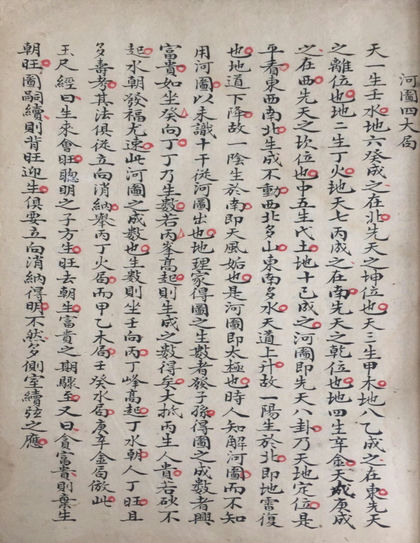 河圖四大局
天一生壬水地六癸成之在北先天之坤位也天三生甲木地八乙成之在東先天
之離位也地二生丁火地天七丙成之在南先天之乾位也地四生辛金天九庚成
之在西先天之坎位也中五生戊土地十己成之河圖即先天八卦乃天地定位是
平看東西南北生成不動西北多山東南多水天道上升故一陽生於北即地雷復
也地道下降故一陰生於南即天風姤也是河圖即太極也時人知解河圖而不知
用河圖以未識十干從河圖出也地理家得圖之生數者發子孫得圖之成數者興
富貴如坐癸向丁丁乃生數若丙峯高起則生成之數得矣大抵丙生人貴若砂不
起水朝發福尤速此河圖之成數也生數則坐壬向丙丁峰高起丁水朝人丁旺且
多壽考其法俱從立向消納舉丙丁火局而甲乙木局壬癸水局庚辛金局倣此
玉尺經曰生來會旺聰明之子方生旺去朝生富貴之期驟至又曰貪富貴則棄生
朝旺圖嗣續則背旺迎生俱要立向消納得明不然多側室續弦之應